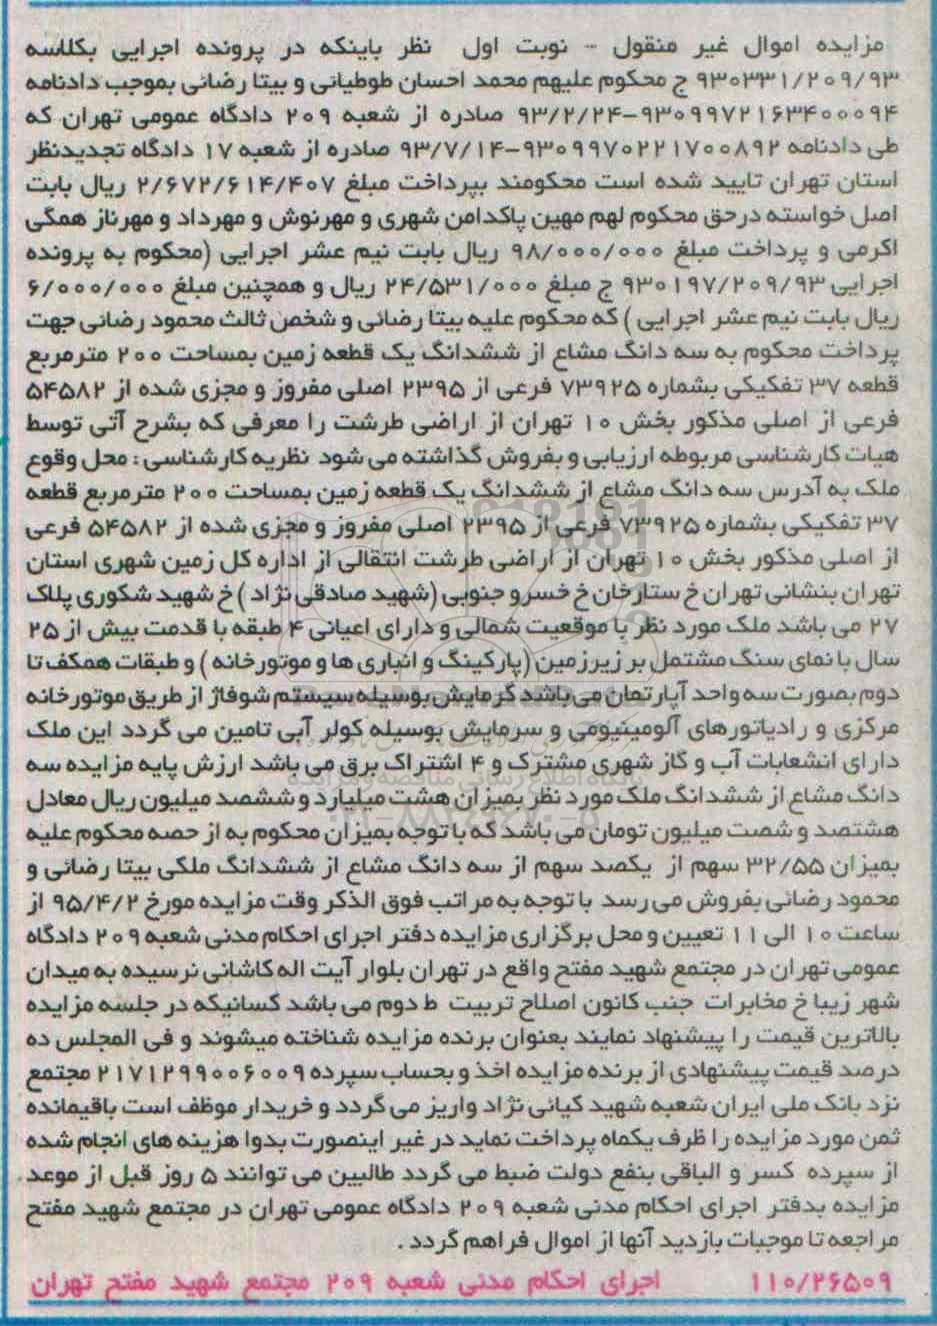 مزایده اموال غیر منقول - نوبت اول نظر باینکه در پرونده اجرایی بکلاسه
۹۳۰۳۳۱/۲۰۹/۹۳ ج محکوم علیهم محمد احسان طوطیائی و بیتا رضائی بموجب دادنامه
۹۳۰۹۹۷۲۱۶۳۴۰۰۰۹۴-۹۳/۲/۲۴ صادره از شعبه ۲۰۹ دادگاه عمومی تهران که
طی دادنامه ۹۳۰۹۹۷۰۲۲۱۷۰۰۸۹۲-۹۳/۷/۱۴ صادره از شعبه ۱۷ دادگاه تجدیدنظر
استان تهران تایید شده است محکومند بپرداخت مبلغ ۲/۶۷۲/۶۱۴/۴۰۷ ریال بابت
اصل خواسته درحق محکوم لهم مهین پاکدامن شهری و مهرنوش و مهرداد و مهرناز همگی
اکرمی و پرداخت مبلغ ۹۸/۰۰۰/۰۰۰ ریال بابت نیم عشر اجرایی (محکوم به پرونده
اجرایی ۹۳۰۱۹۷/۲۰۹/۹۳ ج مبلغ ۲۴/۵۳۱/۰۰۰ ریال و همچنین مبلغ ۶/۰۰۰/۰۰۰
ریال بابت نیم عشر اجرایی ) که محکوم علیه بیتا رضائی و شخص ثالث محمود رضائی جهت
پرداخت محکوم به سه دانگ مشاع از ششدانگ یک قطعه زمین بمساحت ۲۰۰ مترمربع
قطعه ۳۷ تفکیکی بشماره ۷۳۹۲۵ فرعی از ۲۳۹۵ اصلی مفروز و مجزی شده از ۵۴۵۸۲
فرعی از اصلی مذکور بخش ۱۰ تهران از اراضی طرشت را معرفی که بشرح آتی توسط
هیات کارشناسی مربوطه ارزیابی و بفروش گذاشته می شود نظریه کارشناسی : محل وقوع
ملک به آدرس سه دانگ مشاع از ششدانگ یک قطعه زمین بمساحت ۲۰۰ مترمربع قطعه
۳۷ تفکیکی بشماره ۷۳۹۲۵ فرعی از ۲۳۹۵ اصلی مفروز و مجزی شده از ۵۴۵۸۲ فرعی
از اصلی مذکور بخش ۱۰ تهران از اراضی طرشت انتقالی از اداره کل زمین شهری استان
تهران بنشانی تهران خ ستارخان خ خسرو جنوبی (شهید صادقی نژاد ) خ شهید شکوری پلاک
۲۷ می باشد ملک مورد نظر با موقعیت شمالی و دارای اعیانی ۴ طبقه با قدمت بیش از ۲۵
سال با نمای سنگ مشتمل بر زیرزمین (پارکینگ و انباری ها و موتورخانه ) و طبقات همکف تا
دوم بصورت سه واحد آپارتمان می باشد گرمایش بوسیله سیستم شوفاژ از طریق موتورخانه
مرکزی و رادیاتورهای آلومینیومی و سرمایش بوسیله کولر آبی تامین می گردد این ملک
دارای انشعابات آب و گاز شهری مشترک و ۴ اشتراک برق می باشد ارزش پایه مزایده سه
دانگ مشاع از ششدانگ ملک مورد نظر بمیزان هشت میلیارد و ششصد میلیون ریال معادل
هشتصد و شصت میلیون تومان می باشد که با توجه بمیزان محکوم به از حصه محکوم علیه
بمیزان ۳۲/۵۵ سهم از یکصد سهم از سه دانگ مشاع از ششدانگ ملکی بیتا رضائی و
محمود رضائی بفروش می رسد با توجه به مراتب فوق الذکر وقت مزایده مورخ ۹۵/۴/۲ از
ساعت ۱۰ الی ۱۱ تعیین و محل برگزاری مزایده دفتر اجرای احکام مدنی شعبه ۲۰۹ دادگاه
عمومی تهران در مجتمع شهید مفتح واقع در تهران بلوار آیت اله کاشانی نرسیده به میدان
شهر زیبا خ مخابرات جنب کانون اصلاح تربیت ط دوم می باشد کسانیکه در جلسه مزایده
بالاترین قیمت را پیشنهاد نمایند بعنوان برنده مزایده شناخته میشوند و فی المجلس ده
درصد قیمت پیشنهادی از برنده مزایده اخذ و بحساب سپرده ۲۱۷۱۲۹۹۰۰۶۰۰۹ مجتمع
نزد بانک ملی ایران شعبه شهید کیائی نژاد واریز می گردد و خریدار موظف است باقیمانده
ثمن مورد مزایده را ظرف یکماه پرداخت نماید در غیر اینصورت بدوا هزینه های انجام شده
از سپرده کسر و الباقی بنفع دولت ضبط می گردد طالبین می توانند ۵ روز قبل از موعد
مزایده بدفتر اجرای احکام مدنی شعبه ۲۰۹ دادگاه عمومی تهران در مجتمع شهید مفتح
مراجعه تا موجبات بازدید آنها از اموال فراهم گردد .
۱۱۰/۲۶۵۰۹ اجرای احکام مدنی شعبه ۲۰۹ مجتمع شهید مفتح تهران